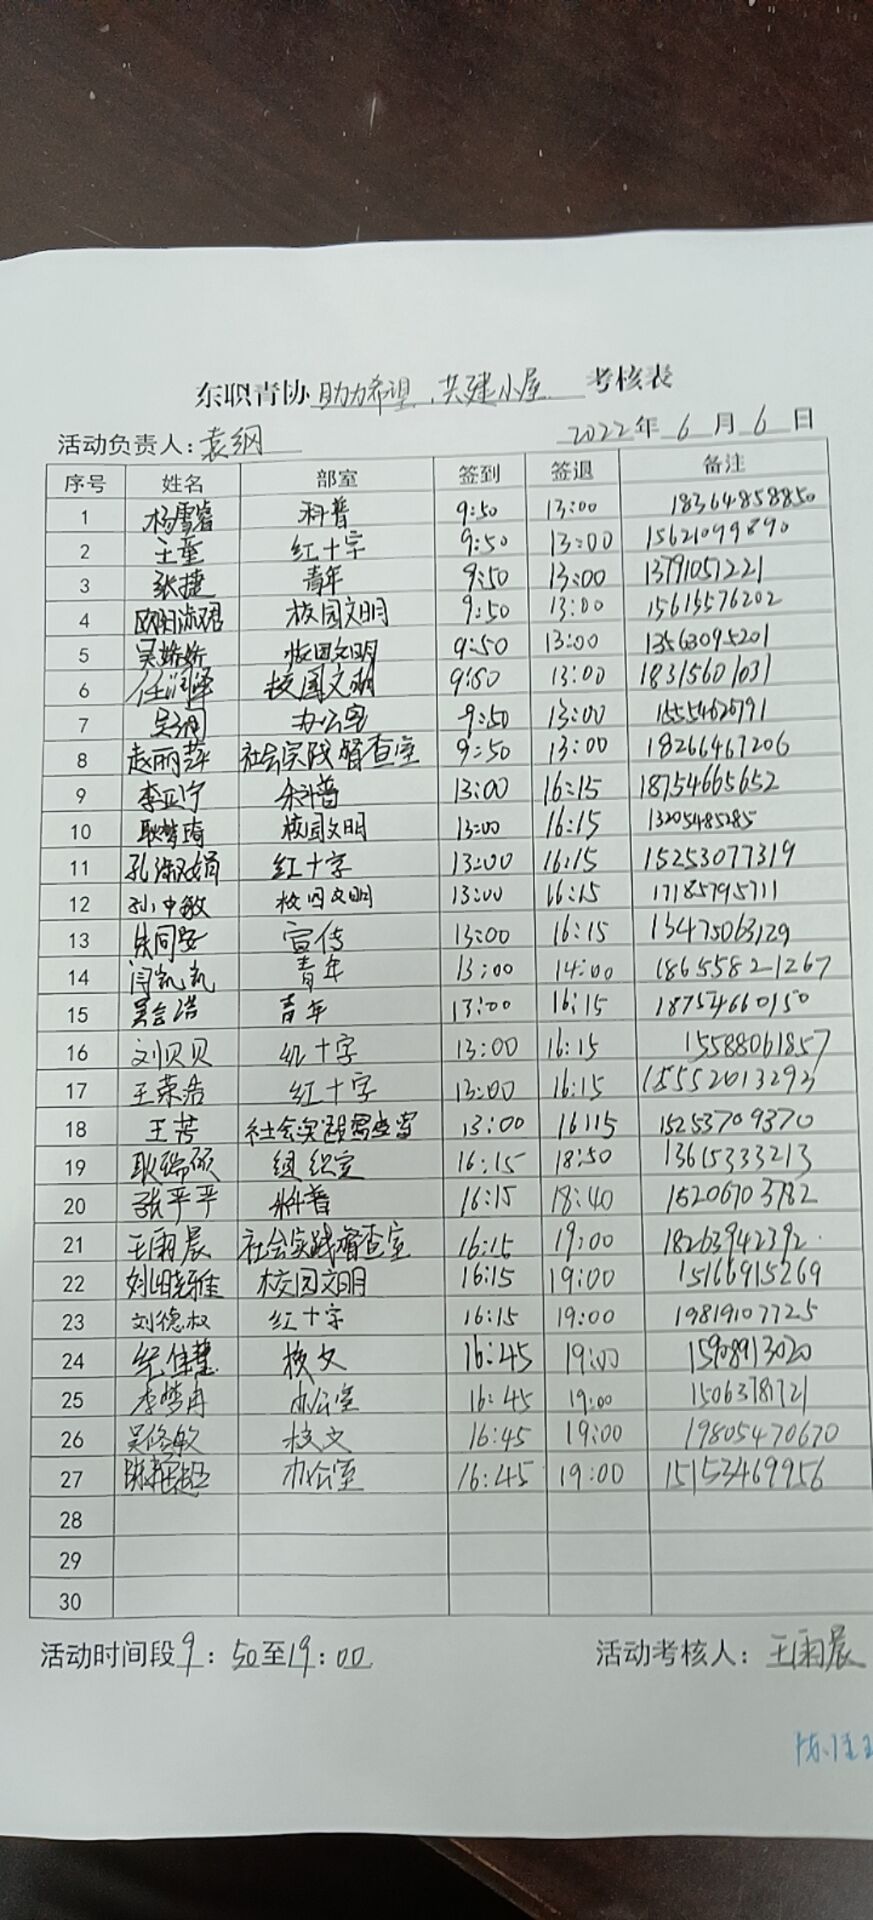 东职青协 助力希望，共建小屋 考核表
活动负责人：袁纲 2022年6月6日
序号 姓名 部室 签到 签退 备注
1 杨雪睿 科普 9:50 13:00 18364858850
2 王童 红十字 9:50 13:00 15621099890
3 张捷 青年 9:50 13:00 13791051221
4 欧阳淑珺 校园文明 9:50 13:00 15615576202
5 吴娇娇 校园文明 9:50 13:00 13563095201
6 任润泽 校园文明 9:50 13:00 18315601031
7 办公室 9:50 13:00 15554626791
8 赵丽萍 社会实践督查室 9:50 13:00 18266467206
9 李亚宁 科普 13:00 16:15 18754665652
10 耿梦琦 校园文明 13:00 16:15 13205485285
11 孔淑娟 红十字 13:00 16:15 15253077319
12 孙中敏 校园文明 13:00 16:15 17185795711
13 宣传 13:00 16:15 13475063129
14 闫凯凯 青年 13:00 14:00 18655821267
15 吴会浩 青年 13:00 16:15 18754660150
16 刘贝贝 红十字 13:00 16:15 15588061857
17 王荣浩 红十字 13:00 16:15 15552013293
18 王芳 社会实践督查室 13:00 16:15 15253709370
19 耿瑞硕 组织室 16:15 18:50 13615333213
20 张平平 科普 16:15 18:40 15206703782
21 王雨晨 社会实践督查室 16:15 19:00 18263942392
22 校园文明 16:15 19:00 15166915269
23 刘德权 红十字 16:15 19:00 19819107725
24 纪佳慧 校文 16:45 19:00 15908913020
25 李梦冉 办公室 16:45 19:00 15063781721
26 吴修敏 校文 16:45 19:00 19805470670
27 办公室 16:45 19:00 15153469956
28
29
30
活动时间段9：50至19：00 活动考核人：王雨晨